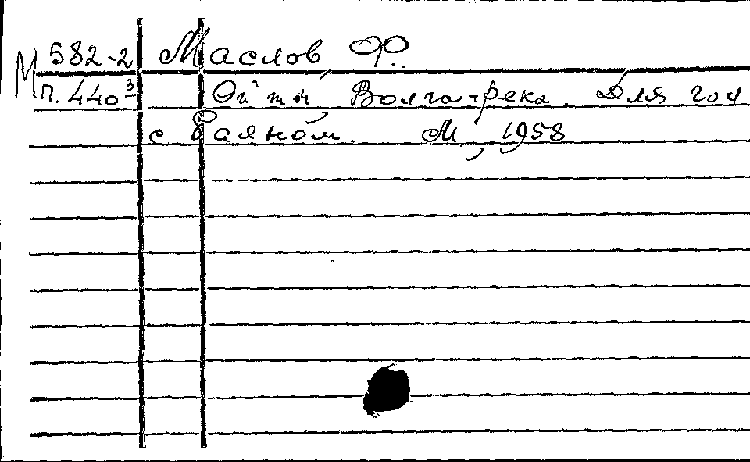 М 582-2 Маслов Ф.
п. 440³ Ой ты, Волга-река. Для гол
с баяном. М, 1958